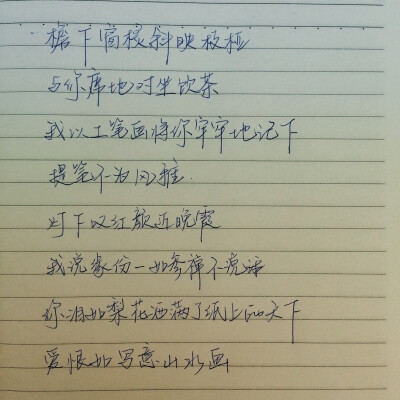 檐下窗棂斜映枝桠
与你席地对坐饮茶
我以工笔画将你牢牢地记下
提笔不为风雅
灯下叹红颜近晚霞
我说缘份一如参禅不说话
你泪如梨花洒满了纸上的天下
爱恨如写意山水画